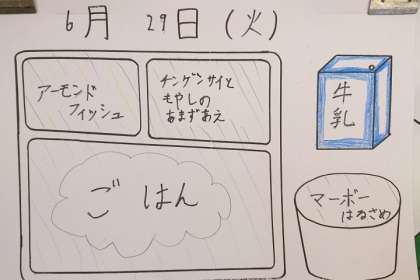 6月 29日(火)
アーモンド
フィッシュ
チンゲンサイと
もやしの
あまずあえ
牛乳
ごはん
マーボー
はるさめ